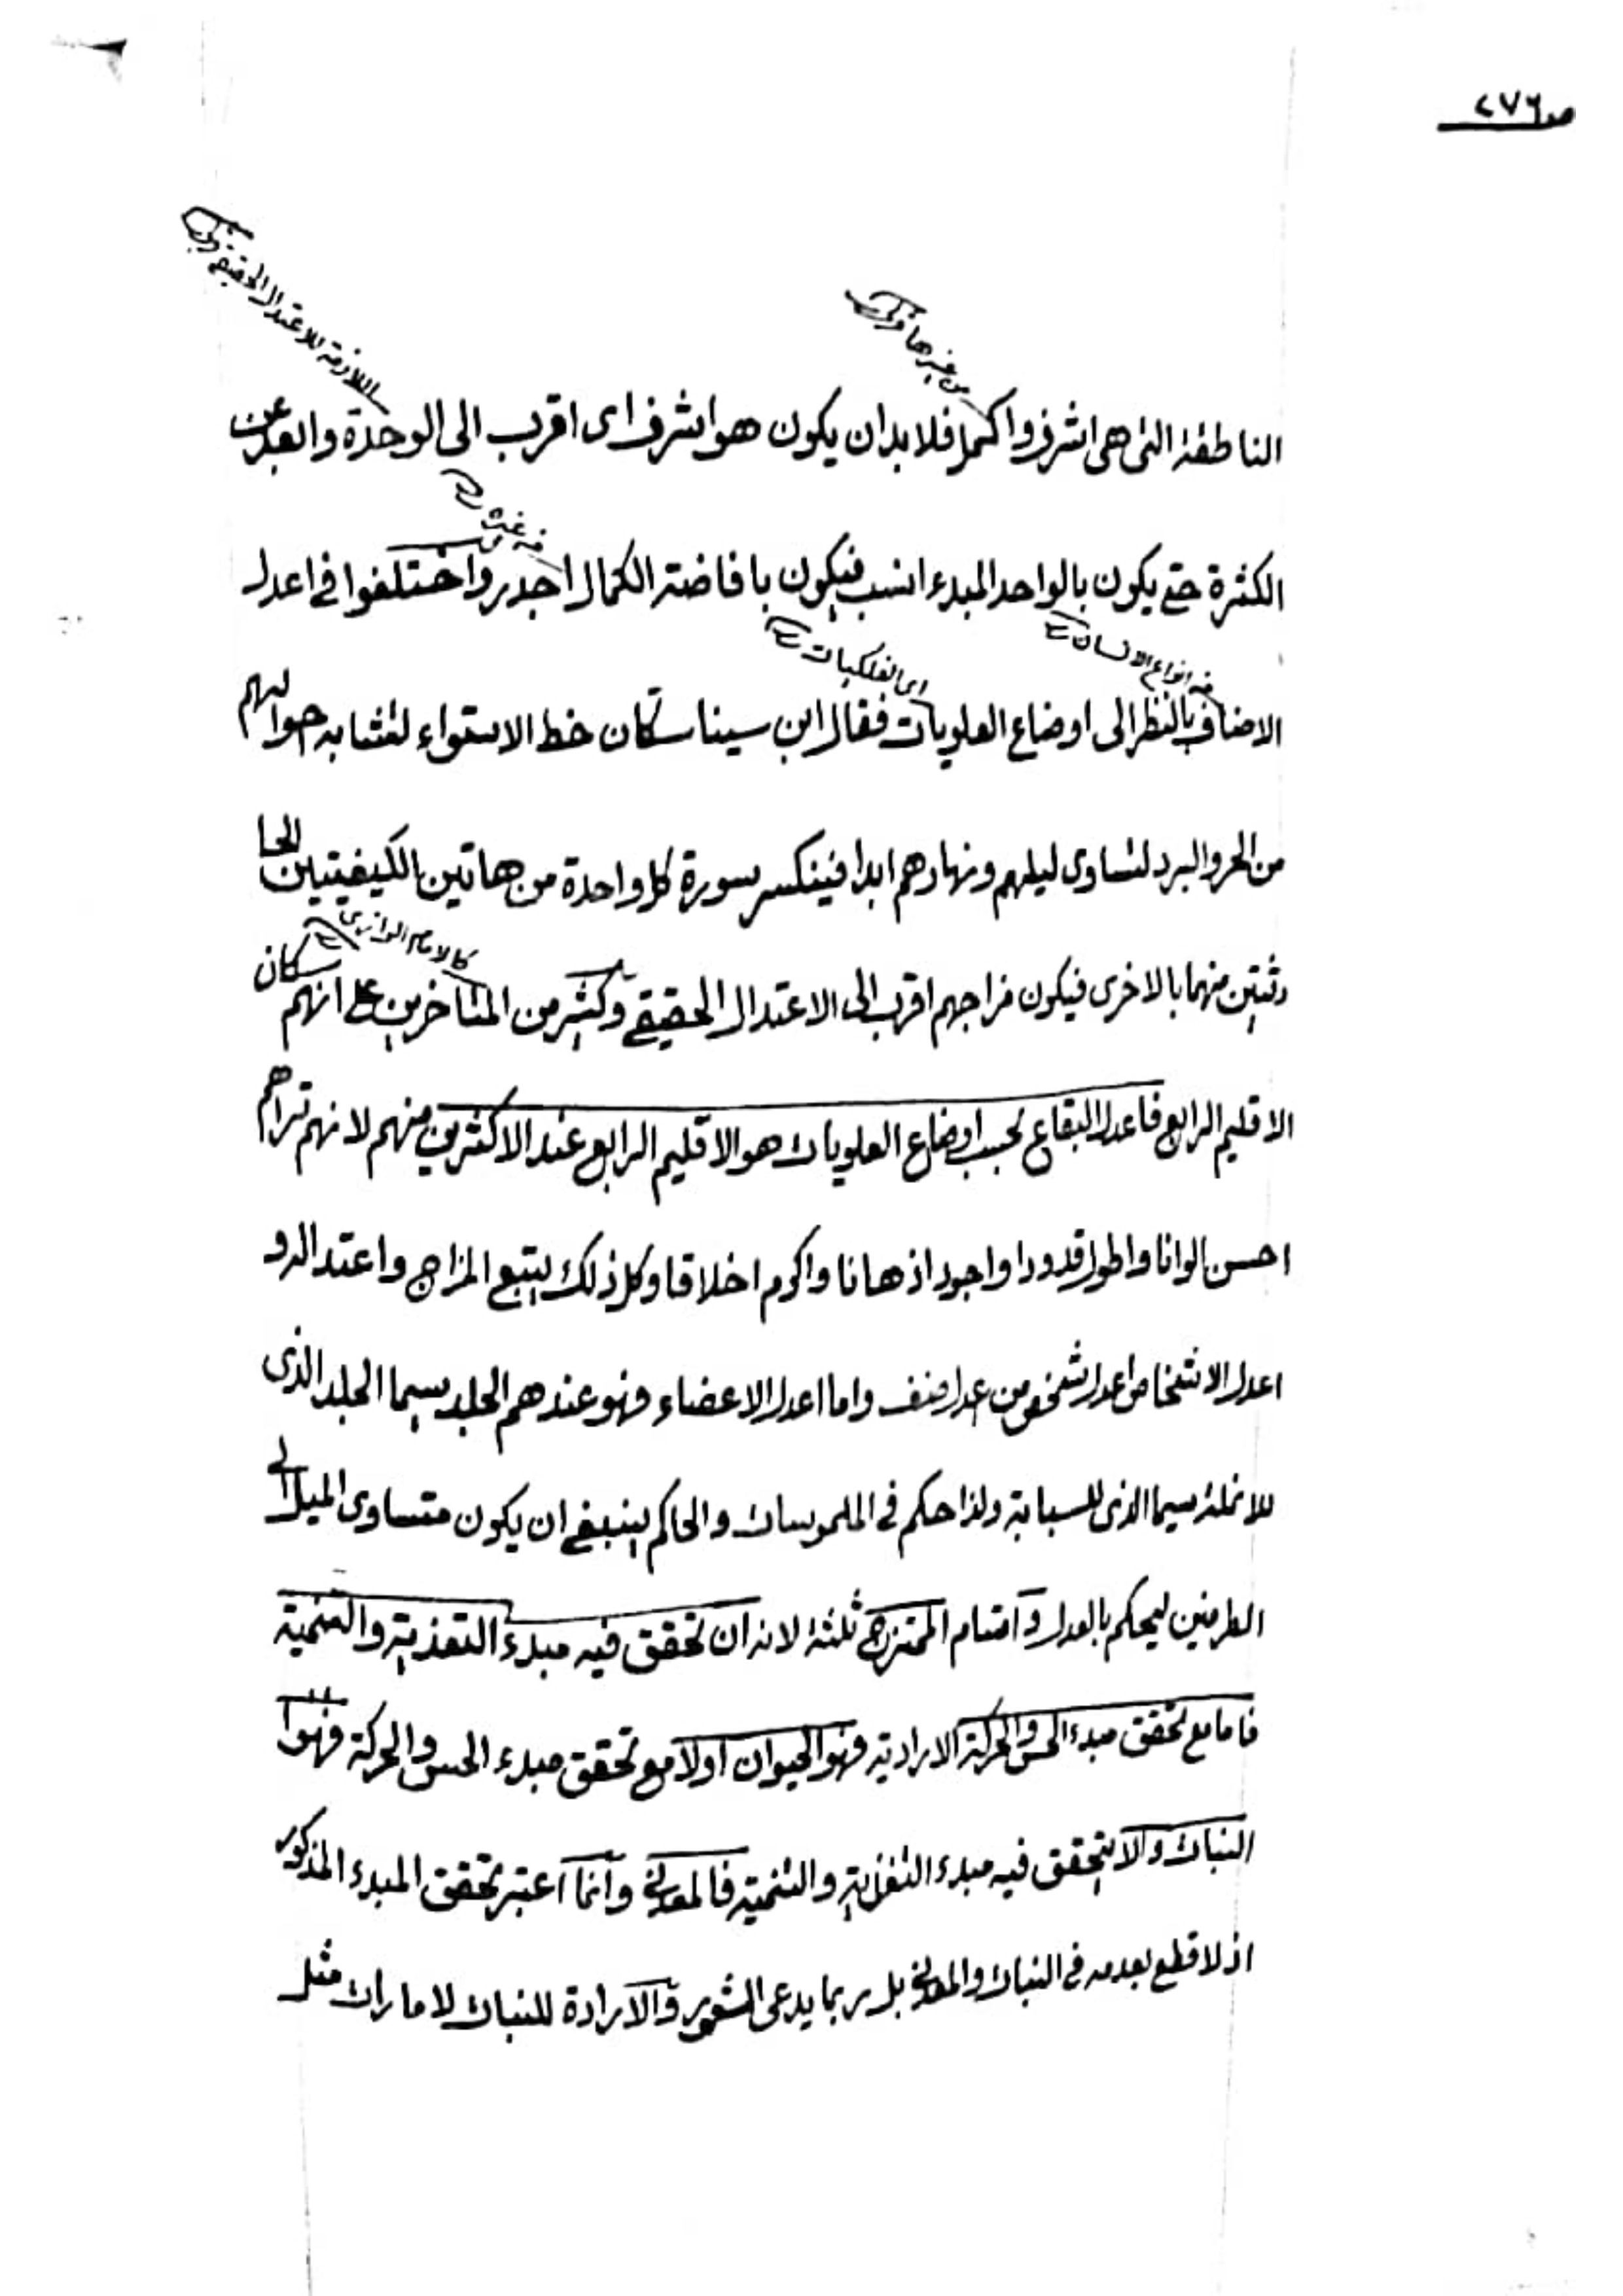 صـ٢٧٦
اللازمة للاعتدال الحقيقي
من غيرها
الناطقة التى هى اشرف واكمل فلا بد ان يكون هو اشرف اى اقرب الى الوحدة والبعد عن
الكثرة حتى يكون بالواحد المبدء انسب فيكون بافاضة الكمال اجدر واختلفوا فى اعدل
من انواع الانسان
اى الفلكيات
الاصناف بالنظر الى اوضاع العلويات فقال ابن سينا سكان خط الاستواء لتشابه احوالهم
من الحر والبرد لتساوى ليلهم ونهارهم ابدا فينكسر سورة كل واحدة من هاتين الكيفيتين الحا
كالامام الرازى
دثتين منهما بالاخرى فيكون مزاجهم اقرب الى الاعتدال الحقيقى وكثير من المتأخرين على انهم سكان
الاقليم الرابع فاعدل البقاع بحسب اوضاع العلويات هو الاقليم الرابع عند الاكثرين منهم لانهم تراهم
احسن الوانا واطول قدودا واجود اذهانا واكرم اخلاقا وكل ذلك يتبع المزاج واعتداله و
اعدل الاشخاص اعدل شخص من اعدل صنف واما اعدل الاعضاء فهو عندهم الجلد سيما الجلد الذى
للانملة سيما الذى للسبابة ولذا حكم فى الملموسات والحاكم ينبغى ان يكون متساوى الميل الى
الطرفين ليحكم بالعدل واقسام الممتزج ثلثة لانه ان تحقق فيه مبدء التغذية والتنمية
فاما مع تحقق مبدء الحس والحركة الارادية فهو الحيوان اولا مع تحقق مبدء الحس والحركة فهو
النبات والا يتحقق فيه مبدء التغذية والتنمية فالمعدنى وانما اعتبر تحقق المبدء المذكور
اذ لا قطع بعدمه فى النبات والمعدنى بل ربما يدعى الشعور والارادة للنبات لامارات مثل